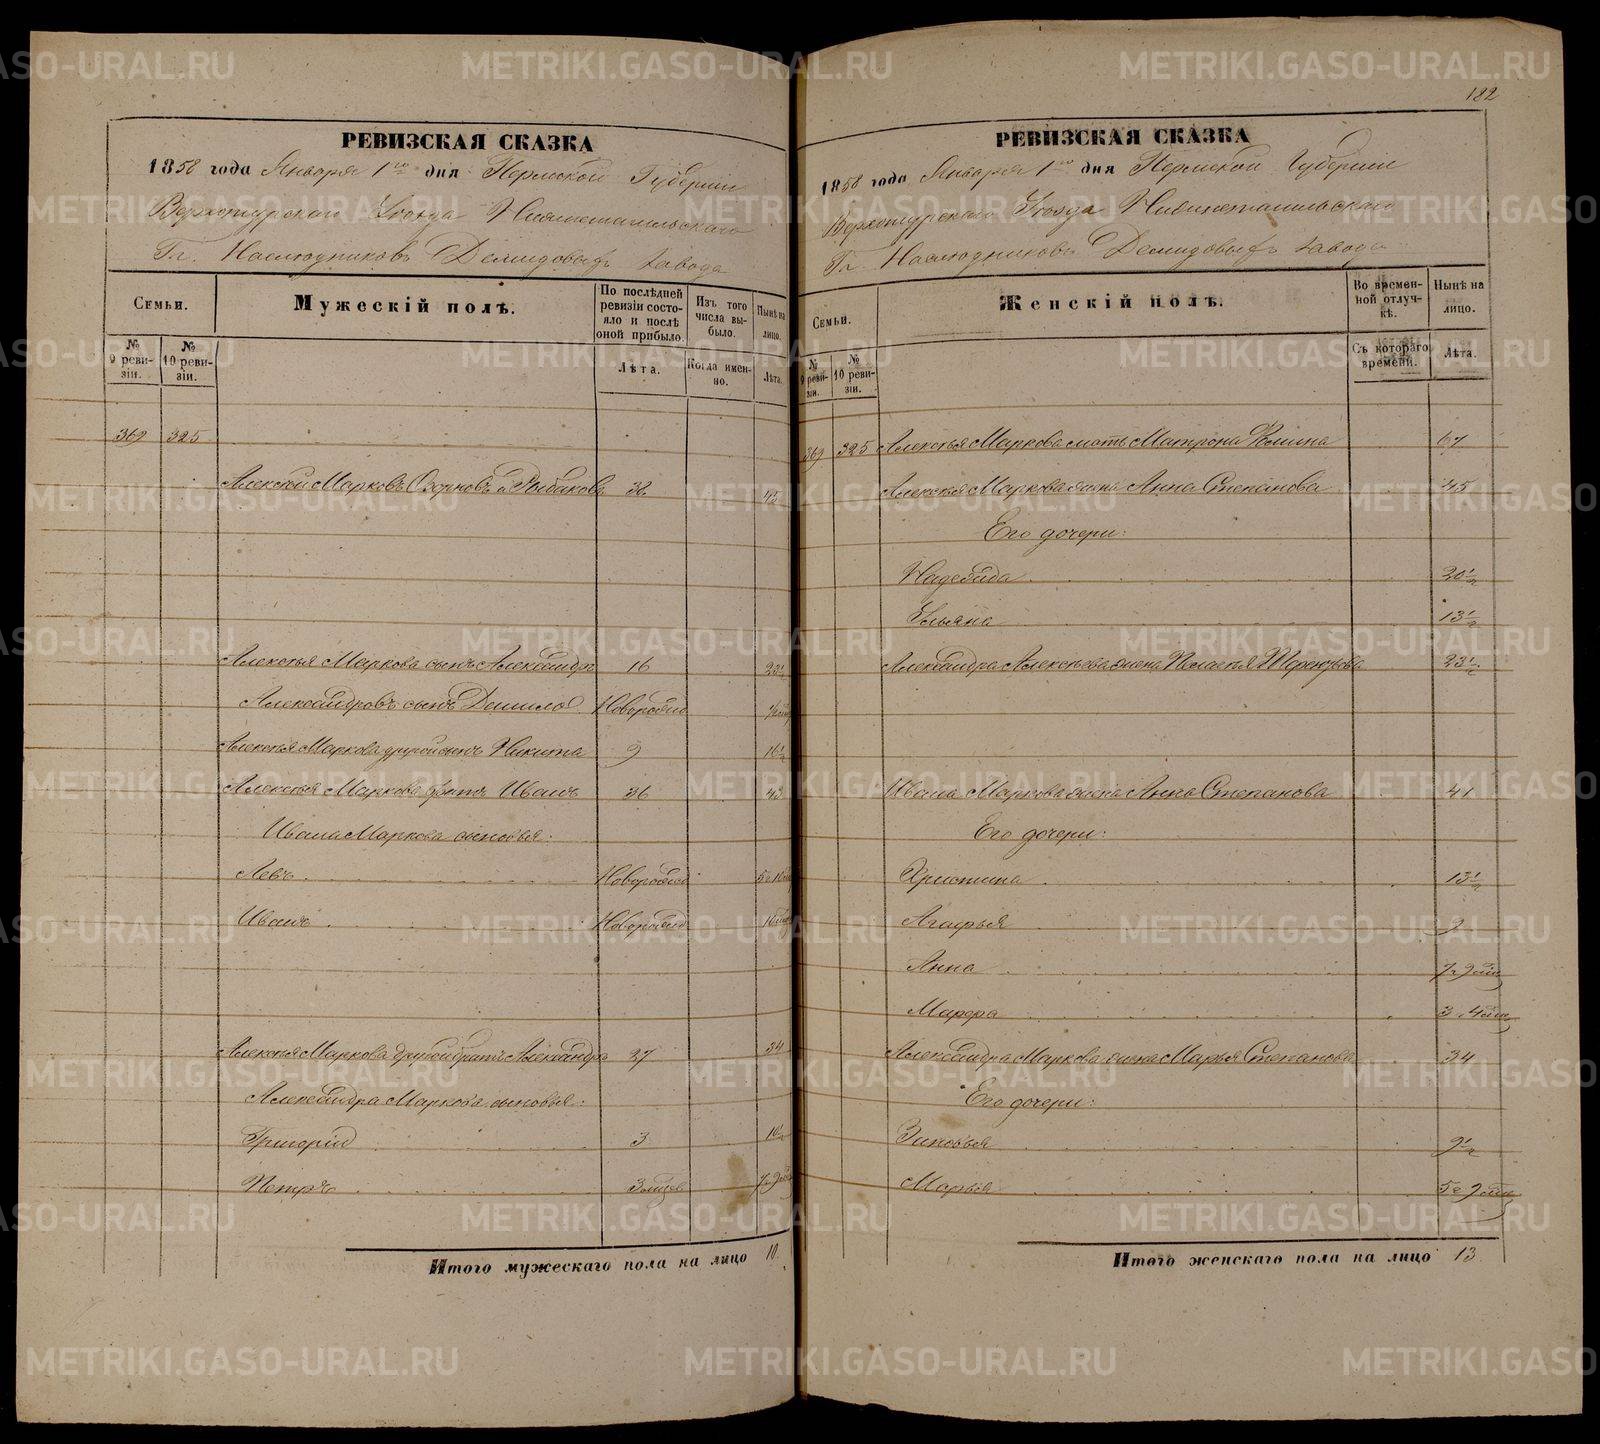 РЕВИЗСКАЯ СКАЗКА
1858 года Января 1го дня Пермской Губерніи
Верхотурскаго Уѣзда Нижнетагильскаго
Гг. Наслѣдниковъ Демидовыхъ завода
Семьи.
Мужескій полъ.
По послѣдней ревизіи состояло и послѣ оной прибыло.
Изъ того числа выбыло.
Нынѣ на лицо.
№ 9 ревизіи.
№ 10 ревизіи.
Лѣта.
Когда именно.
Лѣта.
369 325
Алексѣй Марковъ Озорновъ и Рыбаковъ 38 45
Алексѣя Маркова сынъ Александръ 16 23½
Александровъ сынъ Данило Новорожд
Алексѣя Маркова другой сынъ Никита 9 16½
Алексѣя Маркова братъ Иванъ 36 43
Ивана Маркова сыновья:
Левъ Новорожд
Иванъ Новорожд
Алексѣя Маркова другой братъ Александръ 27 34
Александра Маркова сыновья:
Григорій 3 10½
Петръ
Итого мужескаго пола на лицо 10.
182
РЕВИЗСКАЯ СКАЗКА
1858 года Января 1го дня Пермской Губерніи
Верхотурскаго Уѣзда Нижнетагильскаго
Гг. Наслѣдниковъ Демидовыхъ завода
Семьи.
Женскій полъ.
Во временной отлучкѣ.
Нынѣ на лицо.
№ 9 ревизіи.
№ 10 ревизіи.
Съ котораго времени.
Лѣта.
369 325 Алексѣя Маркова мать Матрона 67
Алексѣя Маркова жена Анна Степанова 45
Его дочери:
Надежда 20½
Ульяна 13½
Александра Алексѣева жена Пелагея Терентьева 23½
Ивана Маркова жена Анна Степанова 41
Его дочери:
Христина 13½
Агафья 9
Анна
Марфа
Александра Маркова жена Марья Степанова 34
Его дочери:
Зиновья 9½
Марья
Итого женскаго пола на лицо 13
METRIKI.GASO-URAL.RU